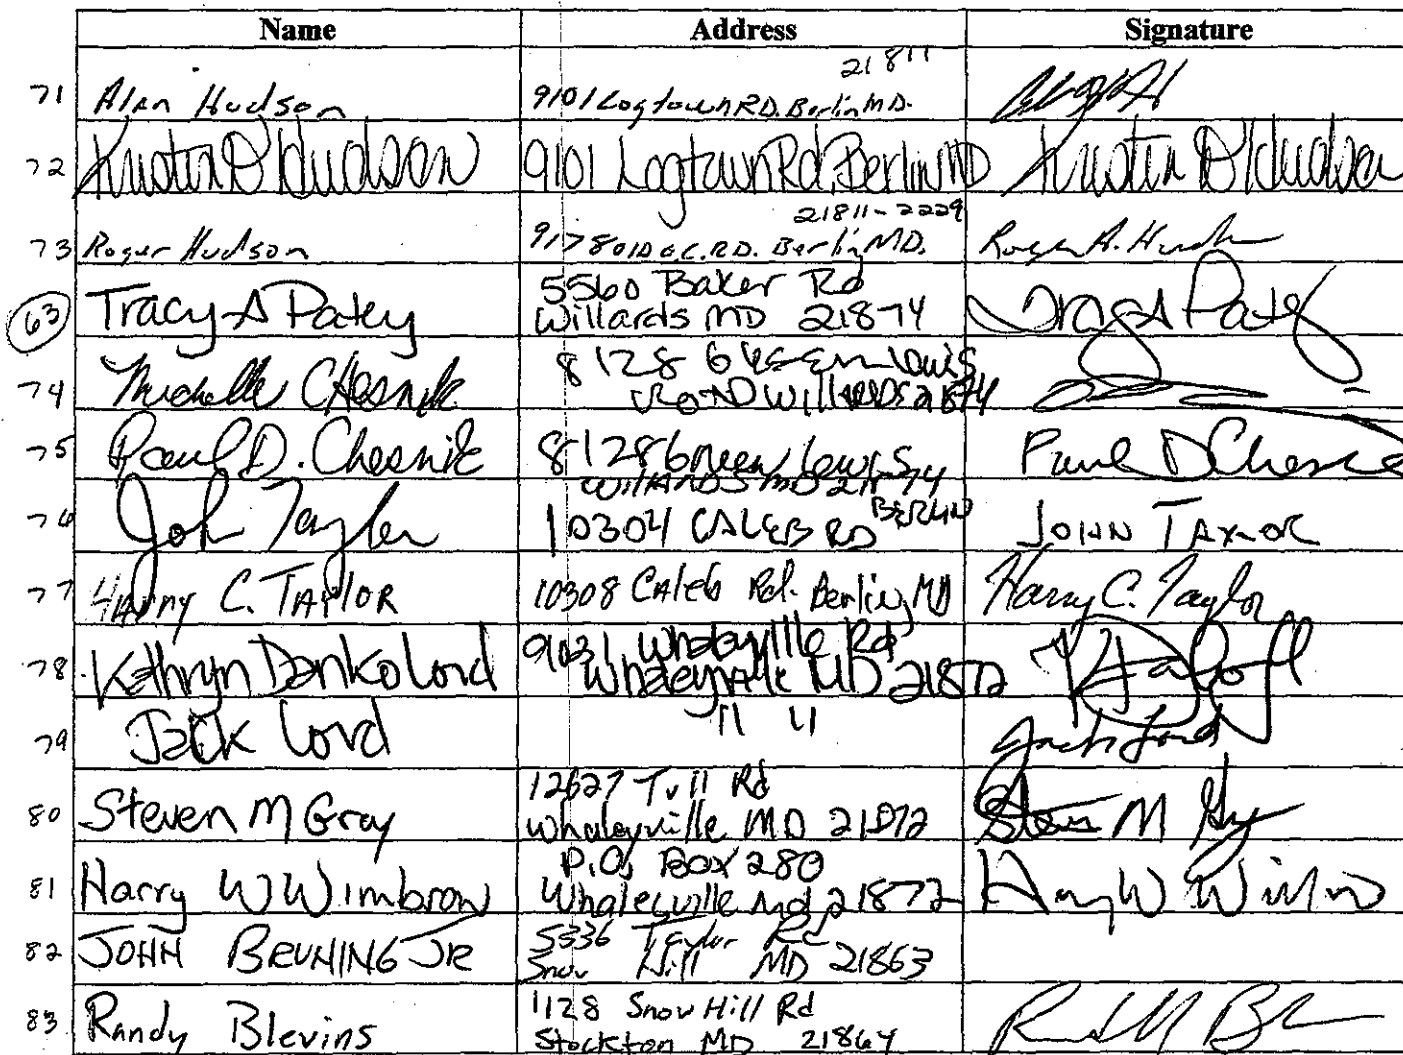 Name Address Signature
71 Alan Hudson 9101 Logtown RD. Berlin MD. 21811
72 Kristin D Hudson 9101 Logtown Rd. Berlin MD Kristin D Hudson
73 Roger Hudson 9178 OLD O.C. RD. Berlin MD. 21811-2229 Roger A. Hudson
63 Tracy A Patey 5560 Baker Rd
Willards MD 21874 Tracy A Patey
74 Michelle Chesnik 8128 Lewis
Road Willards 21874
75 Paul D. Chesnik 8128 Green Lewis
Willards MD 21874 Paul D Chesnik
76 John Taylor 10304 CALEB RD BERLIN JOHN TAYLOR
77 Harry C. TAYLOR 10308 Caleb Rd. Berlin, MD Harry C. Taylor
78. Kathryn Danko Lord 9031 Whaleyville Rd
Whaleyville MD 21872
79 Jack Lord 11 11 Jack Lord
80 Steven M Gray 12627 Tull Rd
Whaleyville MD 21872 Steven M Gray
81 Harry W Wimbrow P.O. Box 280
Whaleyville Md 21872 Harry W
82 JOHN BRUNING JR 5336 Taylor Rd
Snow Hill MD 21863
83. Randy Blevins 1128 Snow Hill Rd
Stockton MD 21864